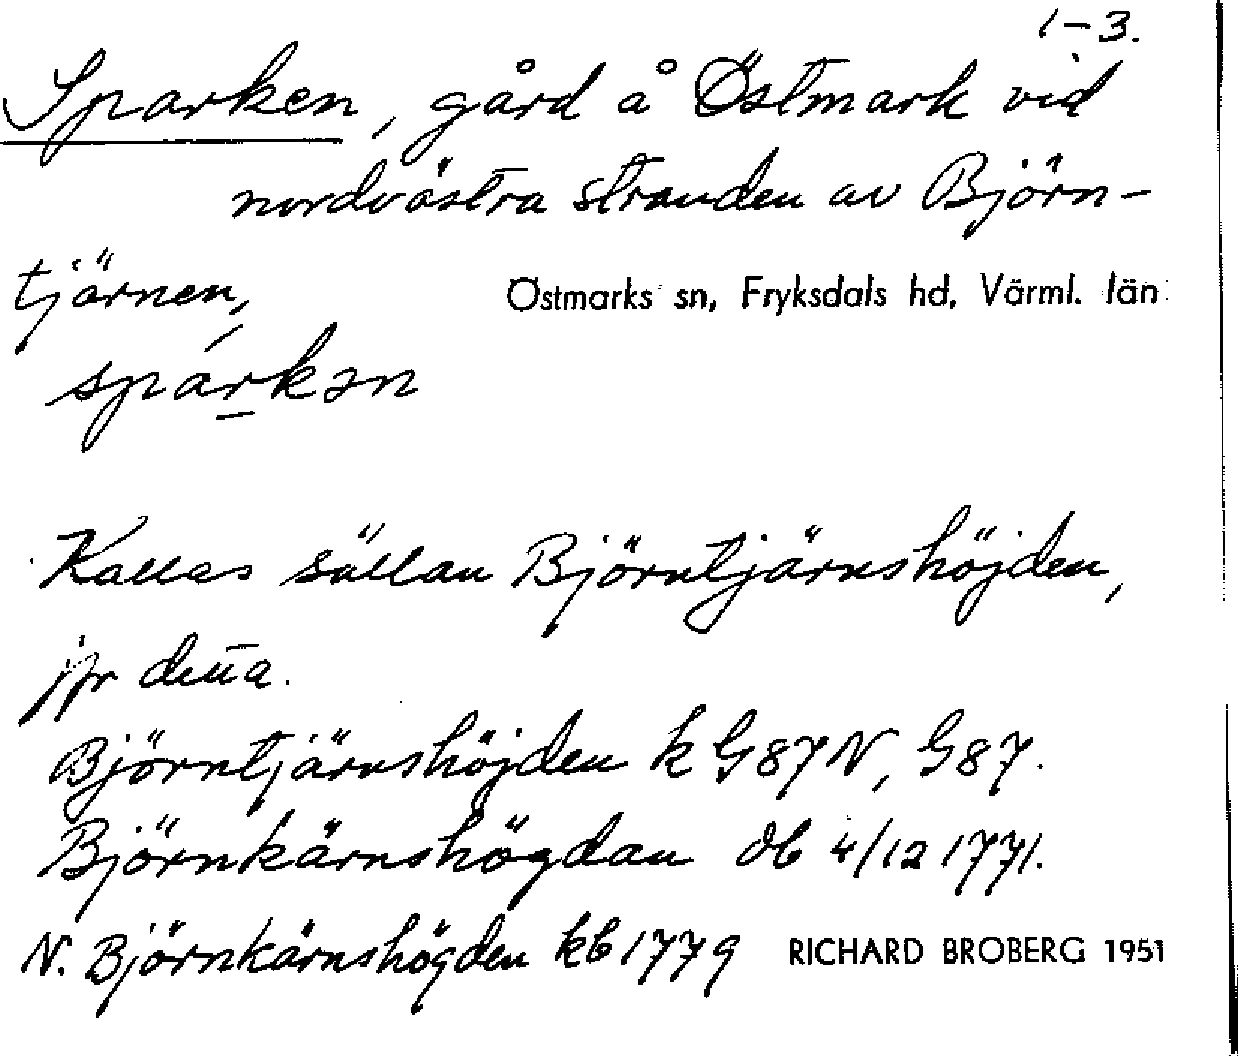 1-3.
Sparken, gård å Östmark vid
nordvästra stranden av Björn-
tjärnen,
Östmarks sn, Fryksdals hd, Värml. län
spárkən
Kallas sällan Björntjärnshöjden,
jfr detta.
Björntjärnshöjden k G87N, G87.
Björnkärnshögdan db 4/12 1771.
N. Björnkärnshögden kb 1779
RICHARD BROBERG 1951